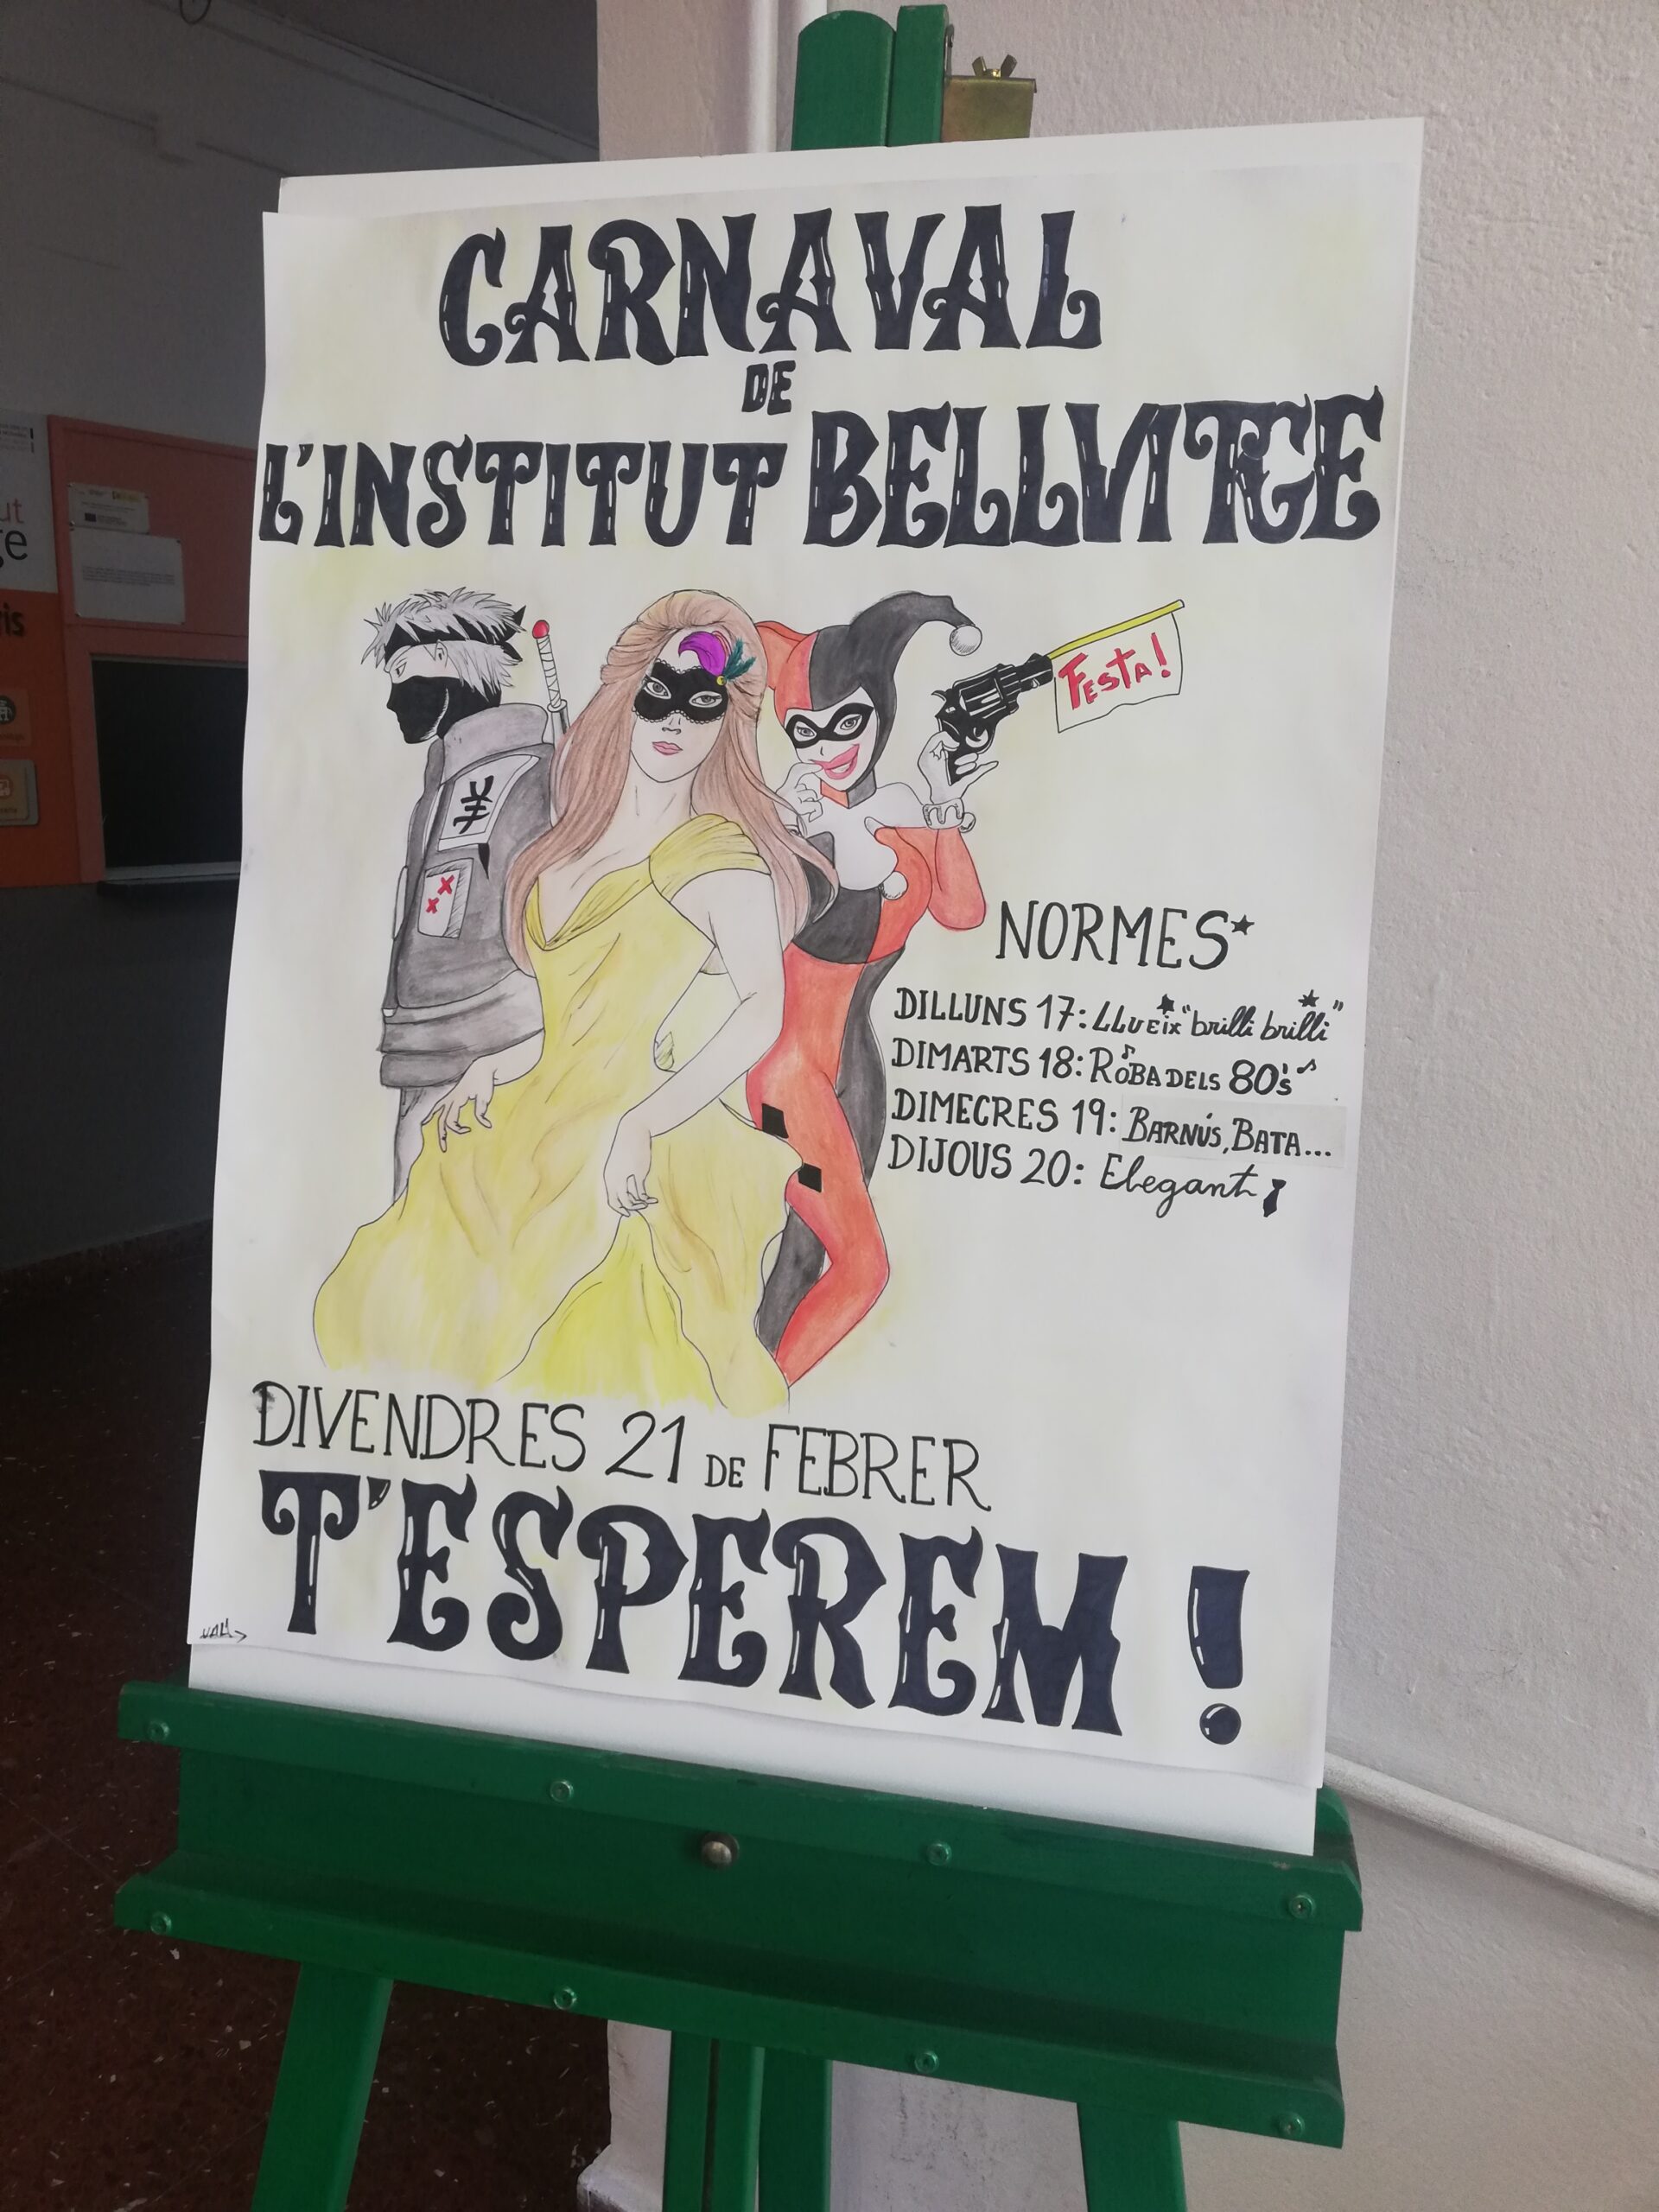 CARNAVAL
DE
L'INSTITUT BELLVITGE
FESTA!
NORMES*
DILLUNS 17: LLUEIX "brilli brilli"
DIMARTS 18: ROBA DELS 80's
DIMECRES 19: BARNÚS, BATA...
DIJOUS 20: Elegant
DIVENDRES 21 DE FEBRER
T'ESPEREM!
ut
ge